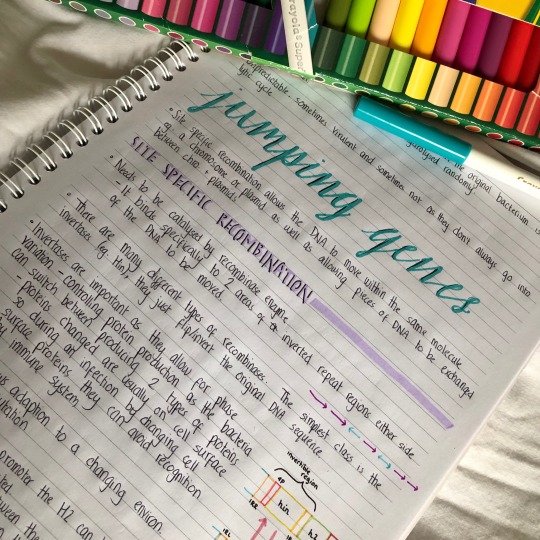 unpredictable, sometimes virulent and sometimes not as they don't always go into
lytic cycle
the original bacterium is
randomly.
jumping genes
• Site specific recombination allows the DNA to move within the same molecule
of a chromosome or plasmid as well as allowing pieces of DNA to be exchanged
between chro + plasmids
SITE SPECIFIC RECOMBINATION
• Needs to be catalysed by recombinase enzyme
- It binds specifically to 2 areas of inverted repeat regions either side
of the DNA to be moved.
• There are many different types of recombinases. The simplest class is the
invertases (eg. Hin), they just flip/invert the original DNA sequence
• Invertases are important as they allow for phase
variation - controlling protein production as the bacteria
can switch between producing 2 types of proteins
- proteins changed are usually on cell surface
so during an infection by changing cell
surface proteins they can avoid recognition
by immune system
adaption to a changing environ.
promoter the H2 can
invertible
region
hin
h2
IRL
Crayola Super